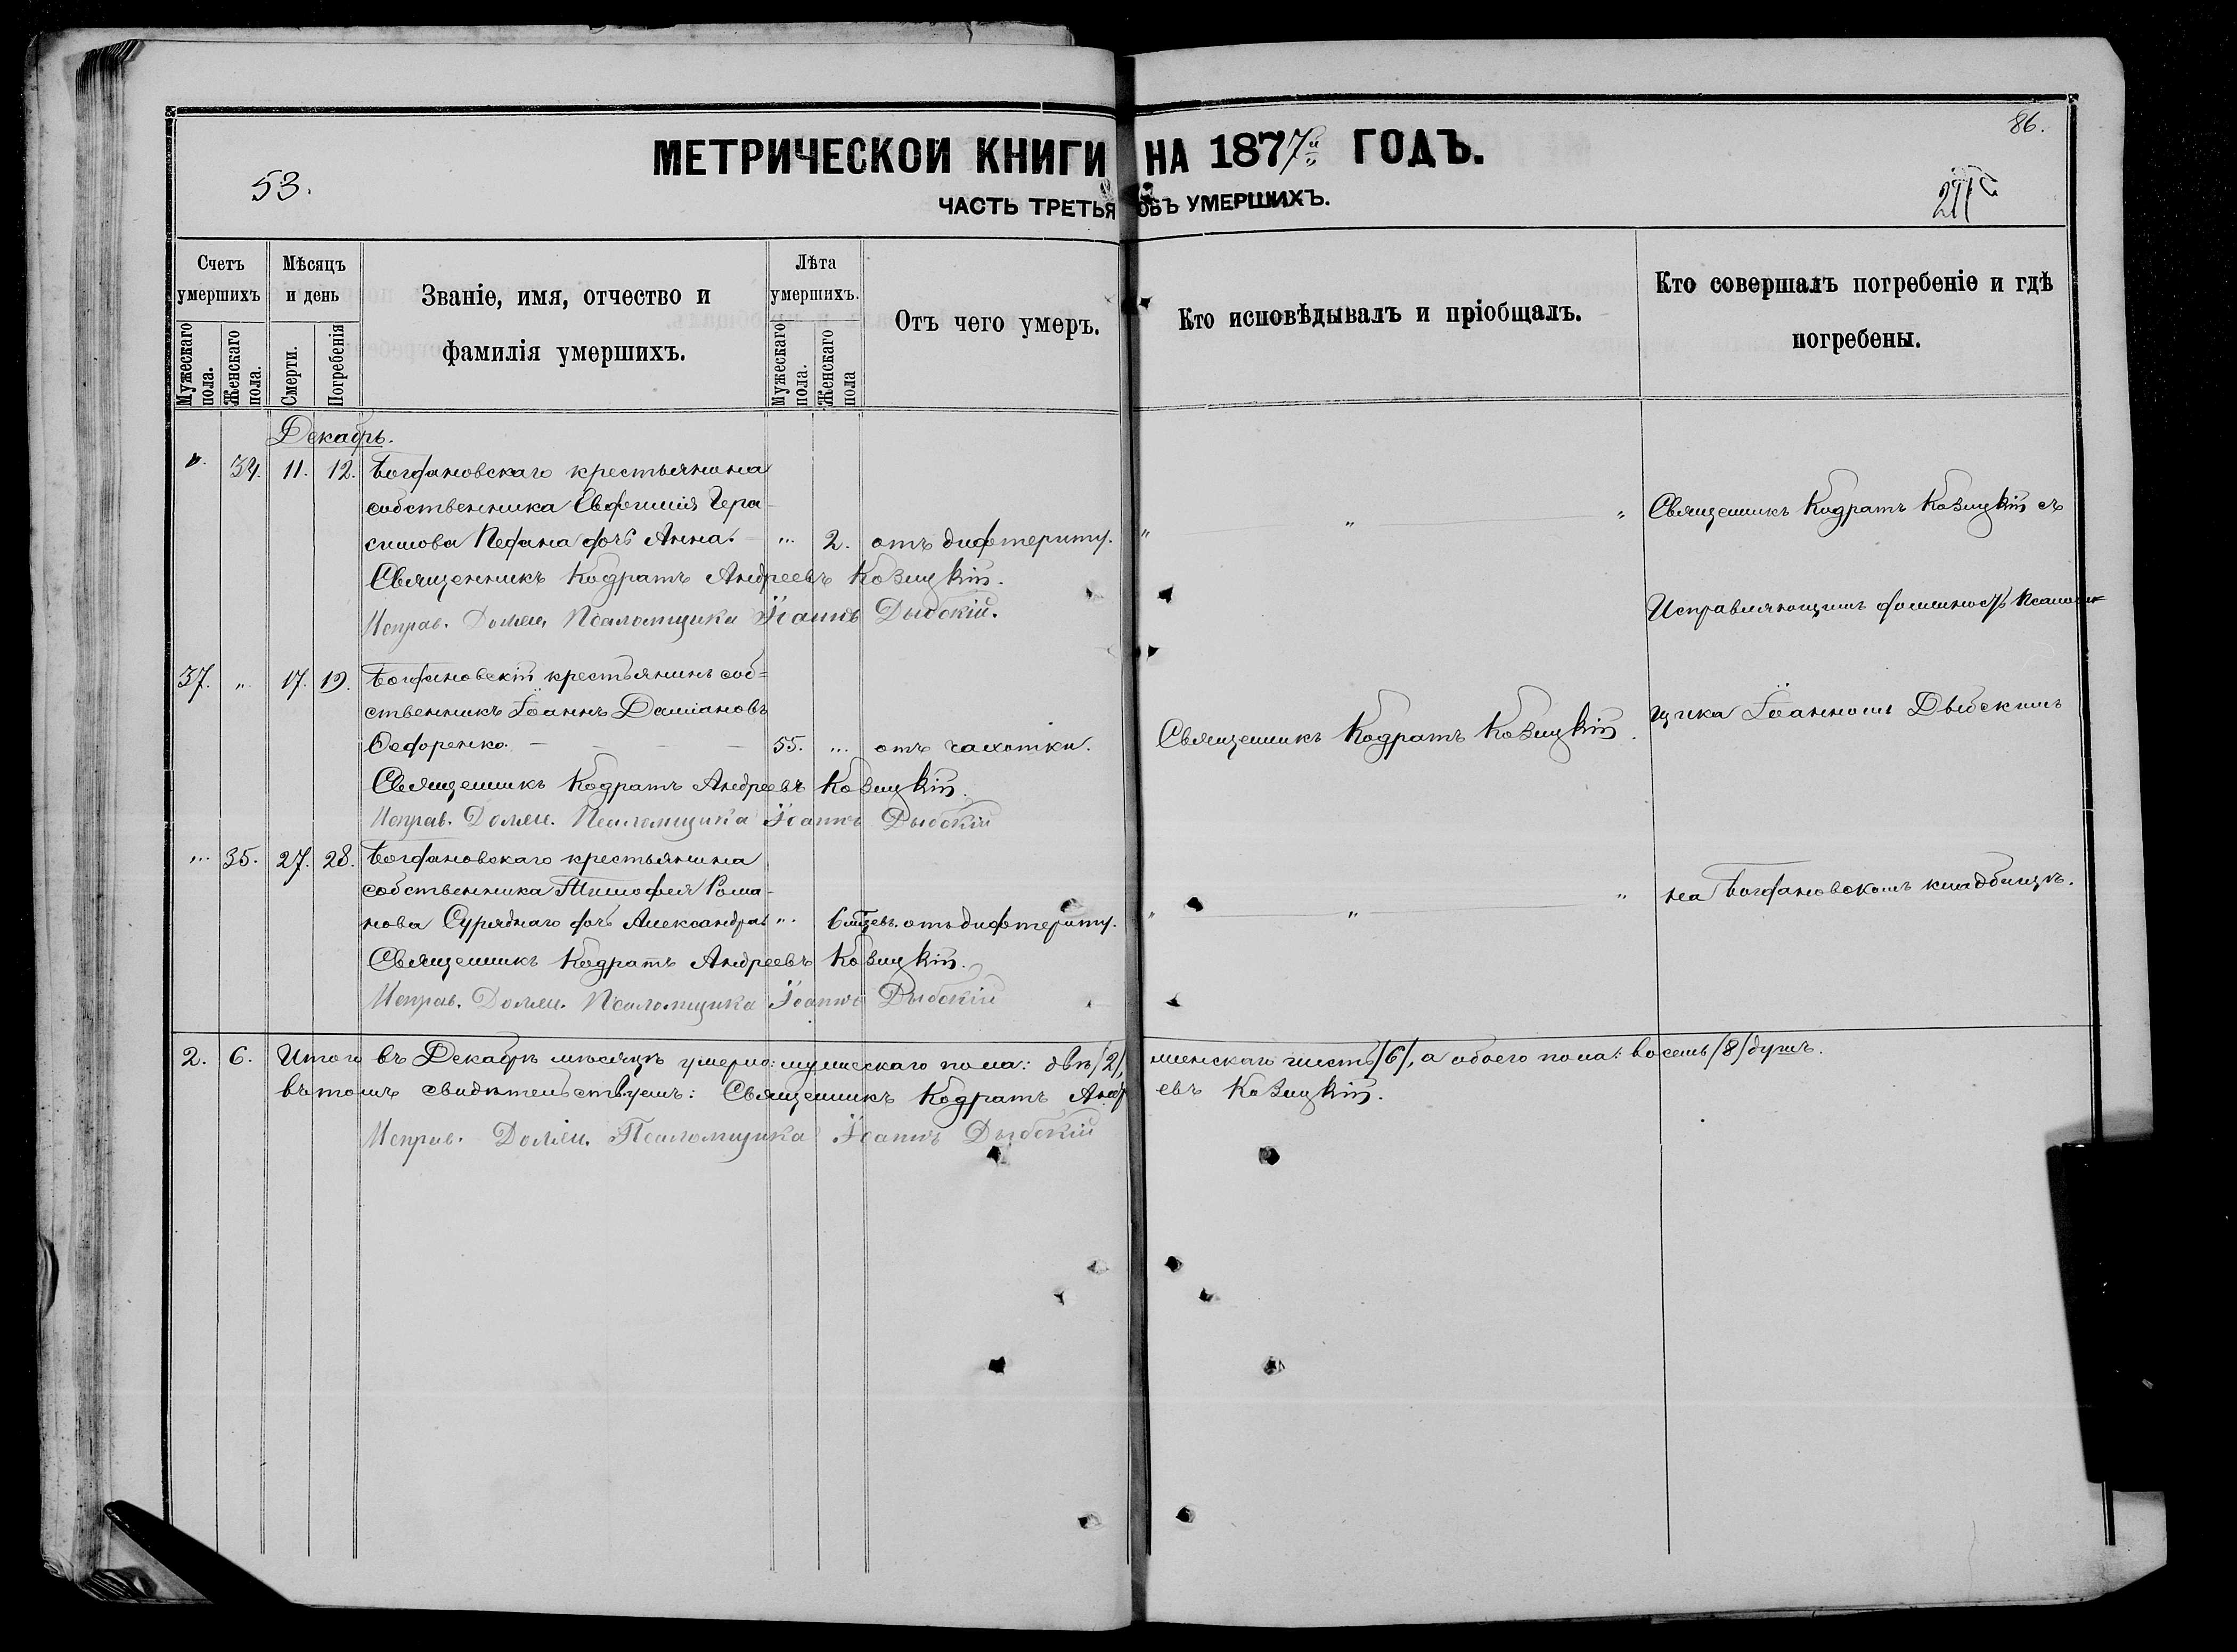 86.
МЕТРИЧЕСКОЙ КНИГИ НА 1877й ГОДЪ.
53.
ЧАСТЬ ТРЕТЬЯ ОБЪ УМЕРШИХЪ.
Счетъ умершихъ
Мужескаго пола.
Женскаго пола.
Мѣсяцъ и день
Смерти.
Погребенія
Званіе, имя, отчество и
фамилія умершихъ.
Лѣта умершихъ.
Мужескаго пола.
Женскаго пола
Отъ чего умеръ.
Кто исповѣдывалъ и пріобщалъ.
Кто совершалъ погребеніе и гдѣ
погребены.
Декабрь.
" 34. 11. 12. Богдановскаго крестьянина
собственника Евфимія Гера-
симова дочь Анна. " 2. отъ дифтериту. " " "
Священникъ Кодратъ Андреевъ Козицкій.
Исправ. Должн. Псаломщика Іоаннъ Дыбскій.
Священникъ Кодратъ Козицкій съ
Исправляющимъ должность Псаломщика
37. " 17. 19. Богдановскій крестьянинъ соб=
ственникъ Іоаннъ Даміановъ
Ѳедоренко. 55. " отъ чахотки. Священникъ Кодратъ Козицкій.
Іоанномъ Дыбскимъ
Священникъ Кодратъ Андреевъ Козицкій.
Исправ. Должн. Псаломщика Іоаннъ Дыбскій
" 35. 27. 28. Богдановскаго крестьянина
собственника Тимофея Рома-
нова дочь Александра " 6 мѣсев. отъ дифтериту. " " "
на Богдановскомъ кладбищѣ.
Священникъ Кодратъ Андреевъ Козицкій.
Исправ. Должн. Псаломщика Іоаннъ Дыбскій
2. 6. Итого въ Декабрѣ мѣсяцѣ умерло: мужескаго пола: двѣ /2/, женскаго шесть /6/, а обоего пола: восемь /8/ душъ.
въ томъ свидѣтельствуемъ: Священникъ Кодратъ Андреевъ Козицкій.
Исправ. Должн. Псаломщика Іоаннъ Дыбскій